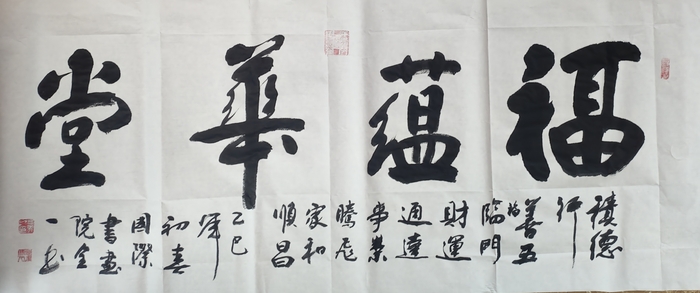 福蕴華堂
積德
行
善五福
臨門
財運
通達
事業
騰飛
家和
順昌
乙巳
年
初春
国際
書畫
院金
一书